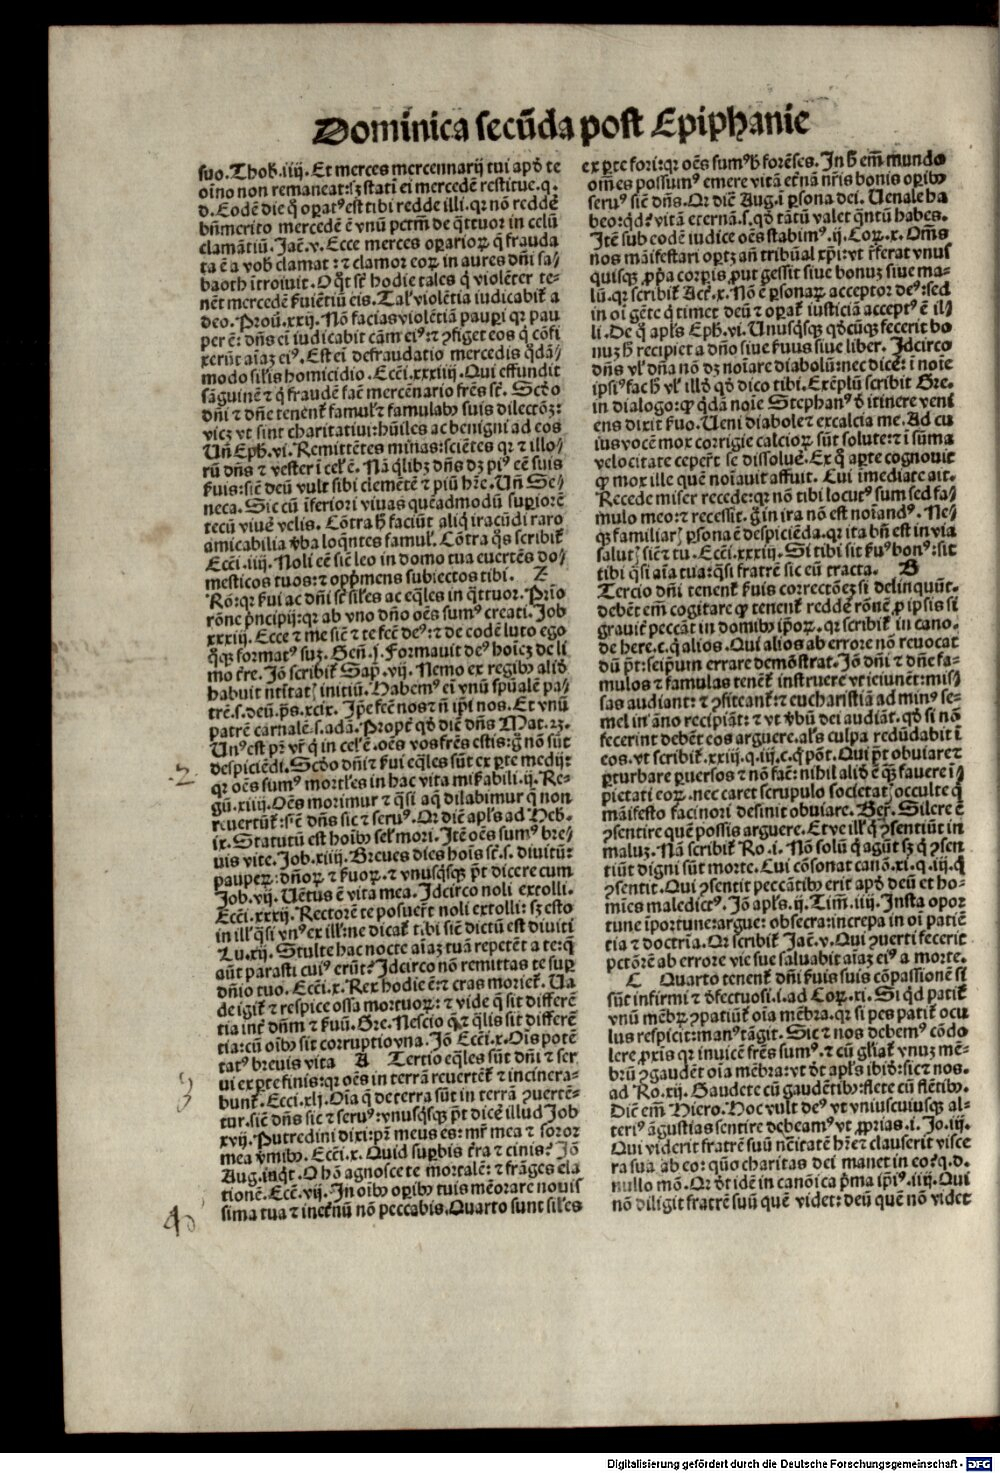 Dominica secūda post Epiphanie
suo. Thob. iiij. Et merces mercennarij tui apd̄ te
oīno non remaneat: sꝫ statī ei mercedē restitue. q.
d. Eodē die q̄ oꝑatꝰ est tibi redde illi. qr nō reddē
bn̄merito mercedē ē vnū pctm̄ de q̄ttuor in celū
clamātiū. Jac̄. v. Ecce merces oꝑarioꝝ q̄ frauda
ta ē a vob̄ clamat: ⁊ clamor eoꝝ in aures dn̄i sa/
baoth ītroiuit. O q̄t st̄ hodie tales q̄ violēter te-
nēt mercedē ẜuiētiū eis. Tal̓ violētia iudicabit̄ a
deo. Prou̓. xxij. Nō facias violētiā pauꝑi qr pau
per ē: dn̄s ei iudicabit cām eiꝰ: ⁊ ꝯfiget eos q̄ cōfi
xerūt aīaꝫ eiꝰ. Est ei defraudatio mercedis q̄dā/
modo sil̓is homicidio. Ecc̄i. xxxiiij. Qui effundit
sāguinē ⁊ q̄ fraudē fac̄ mercēnario frēs st̄. Scd̄o
dn̄i ⁊ dn̄e tenent̄ famul̓ ⁊ famulabꝰ suis dilectōꝫ:
viꝫ vt sint charitatiui: hūiles ac benigni ad eos
Vn̄ Eph̓. vi. Remittētes minas: sciētes qr ⁊ illo/
rū dn̄s ⁊ vester ī cel̓ ē. Nā q̄libꝫ dn̄s dꝫ piꝰ eē suis
ẜuis: sic̄ deū vult sibi clemētē ⁊ piū h̄re. Vn̄ Se-
neca. Sic cū īferiori viuas queadmodū suꝑiorē
tecū viue̓ velis. Cōtra h̄ faciūt aliq̄ iracūdi raro
amicabilia v̓ba loq̄ntes famul̓. Cōtra q̄s scribit̄
Ecc̄i. iiij. Noli eē sic̄ leo in domo tua euertēs do/
mesticos tuos: ⁊ opp̄mens subiectos tibi. Z
Rō: qr ẜui ac dn̄i st̄ sil̓es ac eq̄les in q̄ttuor. Pri̓o
rōne p̄ncipij: qr ab vno dn̄o oēs sumꝰ creati. Job
xxxiij. Ecce ⁊ me sic̄ ⁊ te fec̄ deꝰ: ⁊ de eodē luto ego
q̄qꝫ formatꝰ suꝫ. Gen̄. ij. Formauit deꝰ hoīeꝫ de li
mo t̓re. Jō scribit̄ Sap̄. vij. Nemo ex regibꝰ alid̓
habuit natiuitatꝭ initiū. Habemꝰ ei vnū sp̄ualē pa/
trē. s. deū. p̄s. xcix. Ip̄e fec̄ nos ⁊ n̄ ip̄i nos. Et vnū
patrē carnalē. s. adā. Propt̓ qd̓ dic̄ dn̄s Mat. 23.
Vnꝰ est pr̄ vr̄ q̄ in cel̓ ē. oēs vos frēs estis: g̊ nō sūt
despiciēdi. Scd̄o dn̄i ⁊ ẜui eq̄les sūt ex ꝑte medij:
qr oēs sumꝰ mortl̓es in hac vita mis̓abili. ij. Re-
gū. xiiij. Oēs morimur ⁊ q̄si aq̄ dilabimur q̄ non
reuertūt̄: sic̄ dn̄s sic ⁊ seruꝰ. Or dic̄ apl̓s ad Heb.
ix. Statutū est hoībꝰ sel̓ mori. Itē oēs sumꝰ bre/
uis vite. Job. xiiij. Breues dies hoīs st̄. s. diuitū:
pauperꝫ: dn̄oꝝ ⁊ ẜuoꝝ. ⁊ vnusq̄sqꝫ p̄t dicere cum
Job. vij. Vētus ē vita mea. Idcirco noli extolli.
Ecc̄i. xxxij. Rectorē te posuert̄ noli extolli: sꝫ esto
in ill̓ q̄si vnꝰ ex ill̓: ne dicat̄ tibi sic̄ dictū est diuiti
Lu. xij. Stulte hac nocte aīaꝫ tuā repetēt a te: q̄
aūt parasti cuiꝰ erūt? Idcirco nō remittas te suꝑ
dn̄io tuo. Ecc̄i. x. Rex hodie ē: ⁊ cras moriet̄. Va
de igit̄ ⁊ respice ossa mortuoꝝ: ⁊ vide q̄ sit differē
tia int̓ dn̄m ⁊ ẜuū. Gre. Nescio q̄ ⁊ q̄lis sit differē
tia: cū oībꝰ sit corruptio vna. Jō Ecc̄i. x. Oīs potē
tatꝰ breuis vita A Tertio eq̄les sūt dn̄i ⁊ ser
ui ex ꝑte finis: qr oēs in terrā reuertēt̄ ⁊ incinera-
bunt̄. Ecci. xlj. Oīa q̄ de terra sūt in terrā ꝯuertē-
tur. sic̄ dn̄s sic ⁊ seruꝰ: vnusq̄sqꝫ p̄t dice̓ illud Job
xvij. Putredini dixi: pr̄ meus es: mr̄ mea ⁊ soror
mea v̓mibꝰ. Ecc̄i. x. Quid suꝑbis t̓ra ⁊ cinis? Jō
Aug. inq̄t. O hō agnosce te mortalē: ⁊ frāges ela
tionē. Ecc̄. vij. In oībꝰ oꝑibꝰ tuis mēorare nouis
sima tua ⁊ inet̓nū nō peccabis. Quarto sunt sil̓es
ex ꝑte fori: qr oēs sumꝰ h̓ forēses. In h̓ em̄ mundo
om̄es possumꝰ emere vitā et̓nā nr̄is bonis oꝑibꝰ
seruꝰ sic̄ dn̄s. Or dic̄ Aug. ī ꝑsona dei. Uenale ha
beo: qd̓? vitā eternā. s. qd̓ tātū valet q̄ntū habes.
Itē sub eodē iudice oēs stabimꝰ. ij. Coꝝ. x. Om̄s
nos māifestari oꝑtꝫ an̄ tribūal xp̄i: vt r̓ferat vnus
quisqꝫ ꝓp̄a corꝑis ꝓut gessit siue bonuꝫ siue ma-
lū. qr scribit̄ Act̓. x. Nō ē ꝑsonaꝝ acceptor deꝰ: sed
in oī gēte q̄ timet deū ⁊ oꝑat̄ iusticiā acceptꝰ ē il/
li. De q̄ apl̓s Eph̓. vi. Unusq̄sqꝫ qd̓cūqꝫ fecerit bo
nuꝫ h̓ recipiet a dn̄o siue ẜuus siue liber. Idcirco
dn̄s vl̓ dn̄a nō dꝫ noīare diabolū: nec dice̓: ī noīe
ipsiꝰ fac h̓ vl̓ illd̓ qd̓ dico tibi. Exēplū scribit Gre.
in dialogo: ꝙ q̄dā noīe Stephanꝰ d̓ itinere veni
ens dixit ẜuo. Ueni diabole ⁊ excalcia me. Ad cu
ius vocē mox corrigie calcioꝝ sūt solute: ⁊ ī sūma
velocitate ceper̄t se dissolue̓. Ex q̄ aꝑte cognouit
ꝙ mox ille quē noīauit affuit. Cui īmediate ait.
Recede miser recede: qr nō tibi locutꝰ sum sed fa/
mulo meo: ⁊ recessit. g̊ in ira nō est noīandꝰ. Ne/
qꝫ familiarꝭ ꝑsona ē despiciēda. qr ita bn̄ est in via
salutꝭ sic̄ ⁊ tu. Ecc̄i. xxxiij. Si tibi sit ẜuꝰ bonꝰ: sit
tibi q̄si aīa tua: q̄si fratrē sic eū tracta. B
Tercio dn̄i tenent̄ ẜuis correctōeꝫ si delinquūt.
debēt em̄ cogitare ꝙ tenent̄ redde̓ rōnē ꝓ ipsis si
grauit̓ peccāt in domibꝰ ip̄oꝝ. qr scribit̄ in cano.
de here. c. q̄ alios. Qui alios ab errore nō reuocat
dū p̄t: seip̄um errare demōstrat. Jō dn̄i ⁊ dn̄e fa-
mulos ⁊ famulas tenēt̄ instruere vt ieiunēt: mis/
sas audiant: ⁊ ꝯfiteant̄: ⁊ eucharistiā ad minꝰ se-
mel in āno recipiāt: ⁊ vt v̓bū dei audiāt. qd̓ si nō
fecerint debēt eos arguere. al̓s culpa redūdabit ī
eos. vt scribit̄. xxiij. q. iij. c. q̄ pōt. Qui p̄t obuiare ⁊
ꝑturbare ꝑuersos ⁊ nō fac̄: nihil alid̓ ē q̄ꝫ fauere ī/
pietati eoꝝ. nec caret scrupulo societatꝭ occulte q̄
māifesto facinori desinit obuiare. Ber̄. Silere ē
ꝯsentire quē possis arguere. Et ve ill̓ q̄ ꝯsentiūt in
maluꝫ. Nā scribit̄ Ro. i. Nō solū q̄ agūt sꝫ q̄ ꝯsen
tiūt digni sūt morte. Cui cōsonat canō. xi. q. iij. q̄
ꝯsentit. Qui ꝯsentit peccātibꝰ erit apd̓ deū et ho-
mīes maledictꝰ. Jō apl̓s. ij. Tim̄. iiij. Insta opor
tune īportune: argue: obsecra: increpa in oī patiē
tia ⁊ doctrīa. Or scribit̄ Jac̄. v. Qui ꝯuerti fecerit
pctōrē ab errore vie sue saluabit aīaꝫ eiꝰ a morte.
C Quarto tenent̄ dn̄i ẜuis suis cōpassionē si
sūt infirmi ⁊ d̓fectuosi. i. ad Coꝝ. xi. Si qd̓ patit̄
vnū mēbꝝ ꝯpatiūt̄ oīa mēbra. qr si pes patit̄ ocu
lus respicit: manꝰ tāgit. Sic ⁊ nos debemꝰ cōdo
lere ꝓxis qr inuicē frēs sumꝰ. ⁊ cū gl̓iat̄ vnuꝫ mē-
brū ꝯgaudēt oīa mēbra: vt dt̄ apl̓s ibid̓: sic ⁊ nos.
ad Ro. xij. Gaudete cū gaudētibꝰ: flete cū flētibꝰ.
Dic̄ em̄ Hiero. Hoc vult deꝰ vt vniuscuiusqꝫ al-
teriꝰ āgustias sentire debeamꝰ vt ꝓprias. i. Jo. iij.
Qui viderit fratrē suū nc̄itatē h̓re ⁊ clauserit visce
ra sua ab eo: quō charitas dei manet in eo? q. d.
nullo mō. Or dt̄ idē in canōica p̄ma ip̄iꝰ. iiij. Qui
nō diligit fratrē suū quē videt: deū quē nō videt
2
3
4
Digitalisierung gefördert durch die Deutsche Forschungsgemeinschaft - DFG